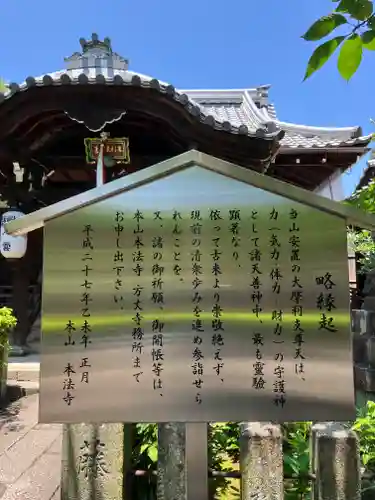 略縁起
当山安置の大摩利支尊天は、
力(気力・体力・財力)の守護神
として諸天善神中、最も霊驗
顕著なり。
依って古来より崇敬絶えず、
現前の清衆歩みを進め参詣せら
れんことを。
又、諸の御祈願、御開帳等は、
本山本法寺・方丈寺務所まで
お申し出下さい。
平成二十七年乙未年 正月
本山 本法寺
藤